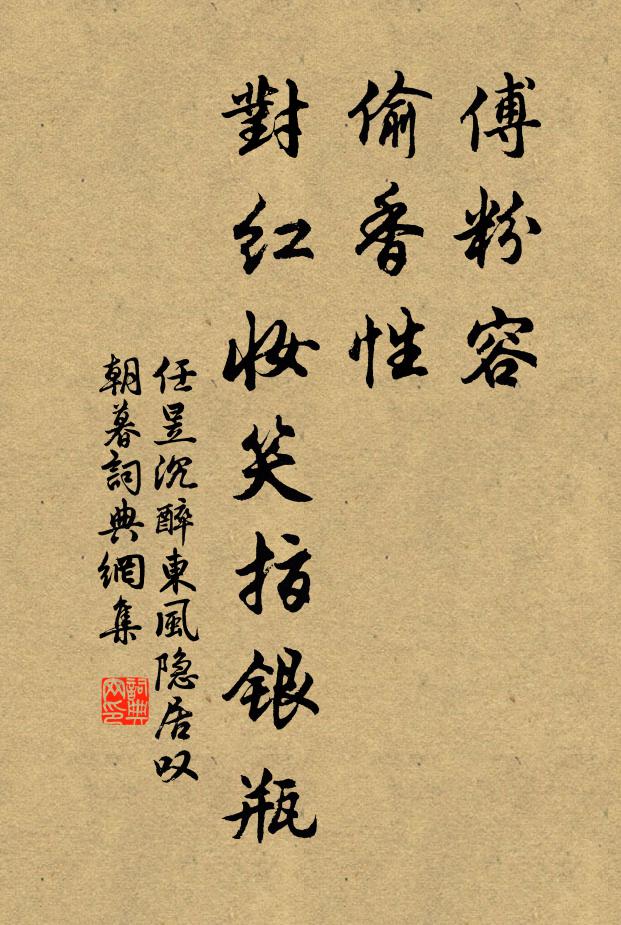 傅粉容
偷香性
對红妝笑指銀瓶
任昱沉醉東風隐居叹
朝暮詞典網集
詞典
网印